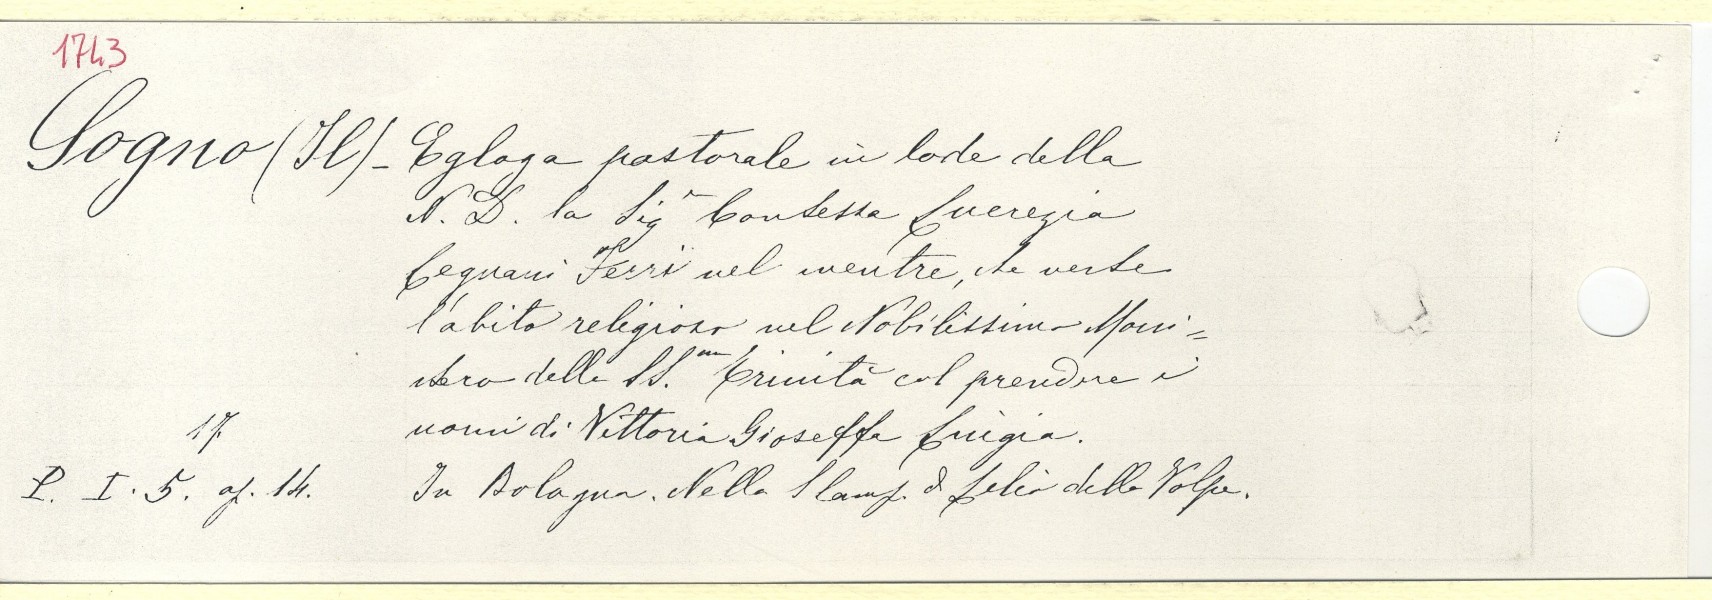 1743
Sogno (Il) - Egloga pastorale in lode della
N. D. la Sig.ª Contessa Lucrezia
Cegnani Ferri nel mentre, che veste
l'abito religioso nel Nobilissimo Moni=
stero della SS.ma Trinità col prendere i
nomi di Vittoria Gioseffa Luigia.
17.
P. I. 5. op. 14. In Bologna. Nella Stamp. di Lelio della Volpe.